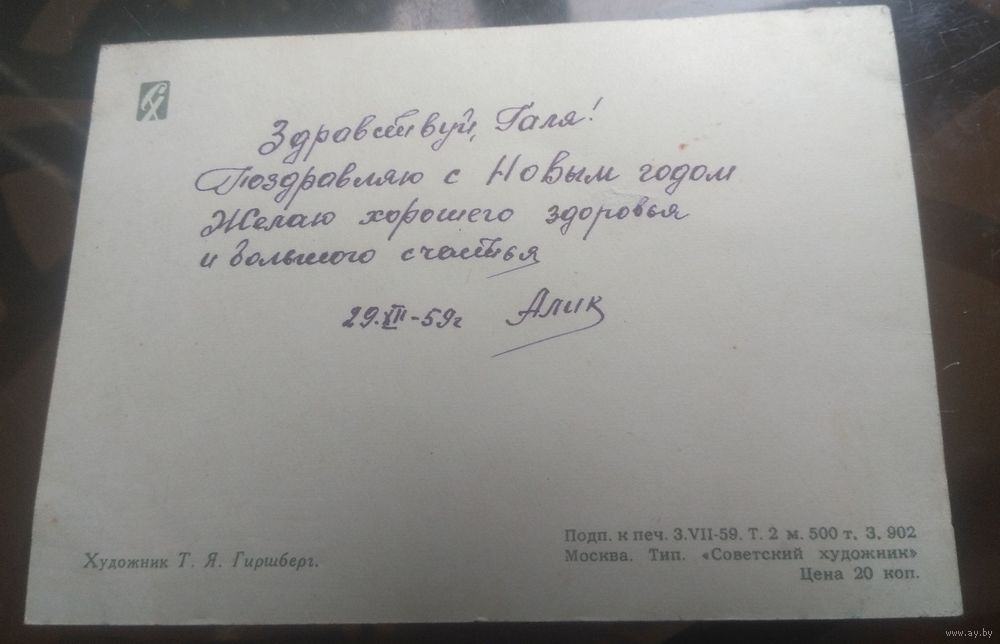 Здравствуй, Галя!
Поздравляю с Новым годом
Желаю хорошего здоровья
и большого счастья
29.XII-59г Алик
Художник Т. Я. Гиршберг.
Подп. к печ. 3.VII-59. Т. 2 м. 500 т. З. 902
Москва. Тип. «Советский художник»
Цена 20 коп.
www.ay.by